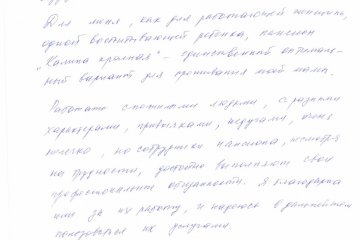 Для меня, как для работающей женщины,
одной воспитывающей ребенка, пансион
"Калина красная" - единственный оптималь-
ный вариант для проживания моей мамы.
Работать с пожилыми людьми, с разными
характерами, привычками, недугами, очень
нелегко, но сотрудники пансиона, несмотря
на трудности, достойно выполняют свои
профессиональные обязанности. Я благодарна
им за их работу, и надеюсь в дальнейшем
пользоваться их услугами.